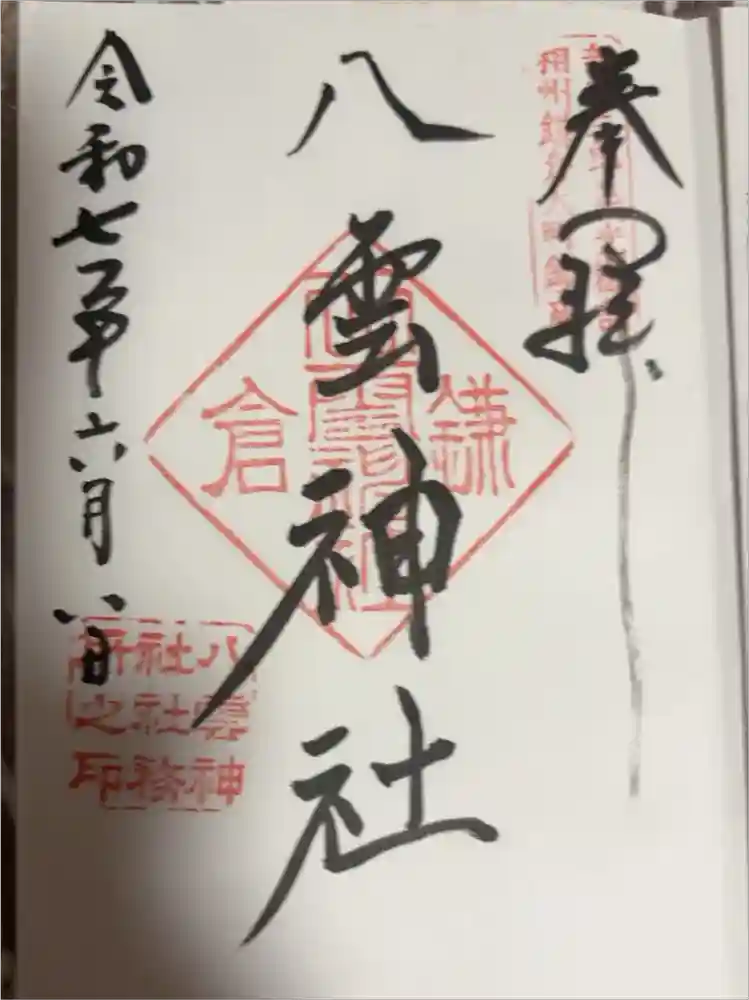 奉拝
相州鎌倉
八雲神社
鎌倉
八雲神社
令和七年六月八日
八雲神
社社務
所之印